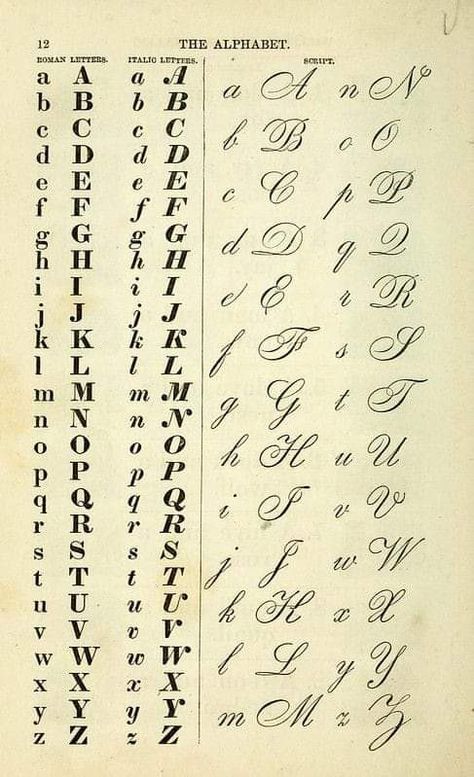 12 THE ALPHABET.
ROMAN LETTERS. ITALIC LETTERS. SCRIPT.
a A a A
b B b B
c C c C
d D d D
e E e E
f F f F
g G g G
h H h H
i I i I
j J j J
k K k K
l L l L
m M m M
n N n N
o O o O
p P p P
q Q q Q
r R r R
s S s S
t T t T
u U u U
v V v V
w W w W
x X x X
y Y y Y
z Z z Z
a A n N
b B o O
c C p P
d D q Q
e E r R
f F s S
g G t T
h H u U
i I v V
j J w W
k K x X
l L y Y
m M z Z